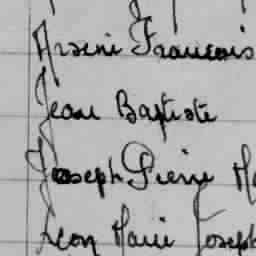 Arseni Francois
Jean Baptiste
Joseph Pierre Ma
Leon Marie Joseph